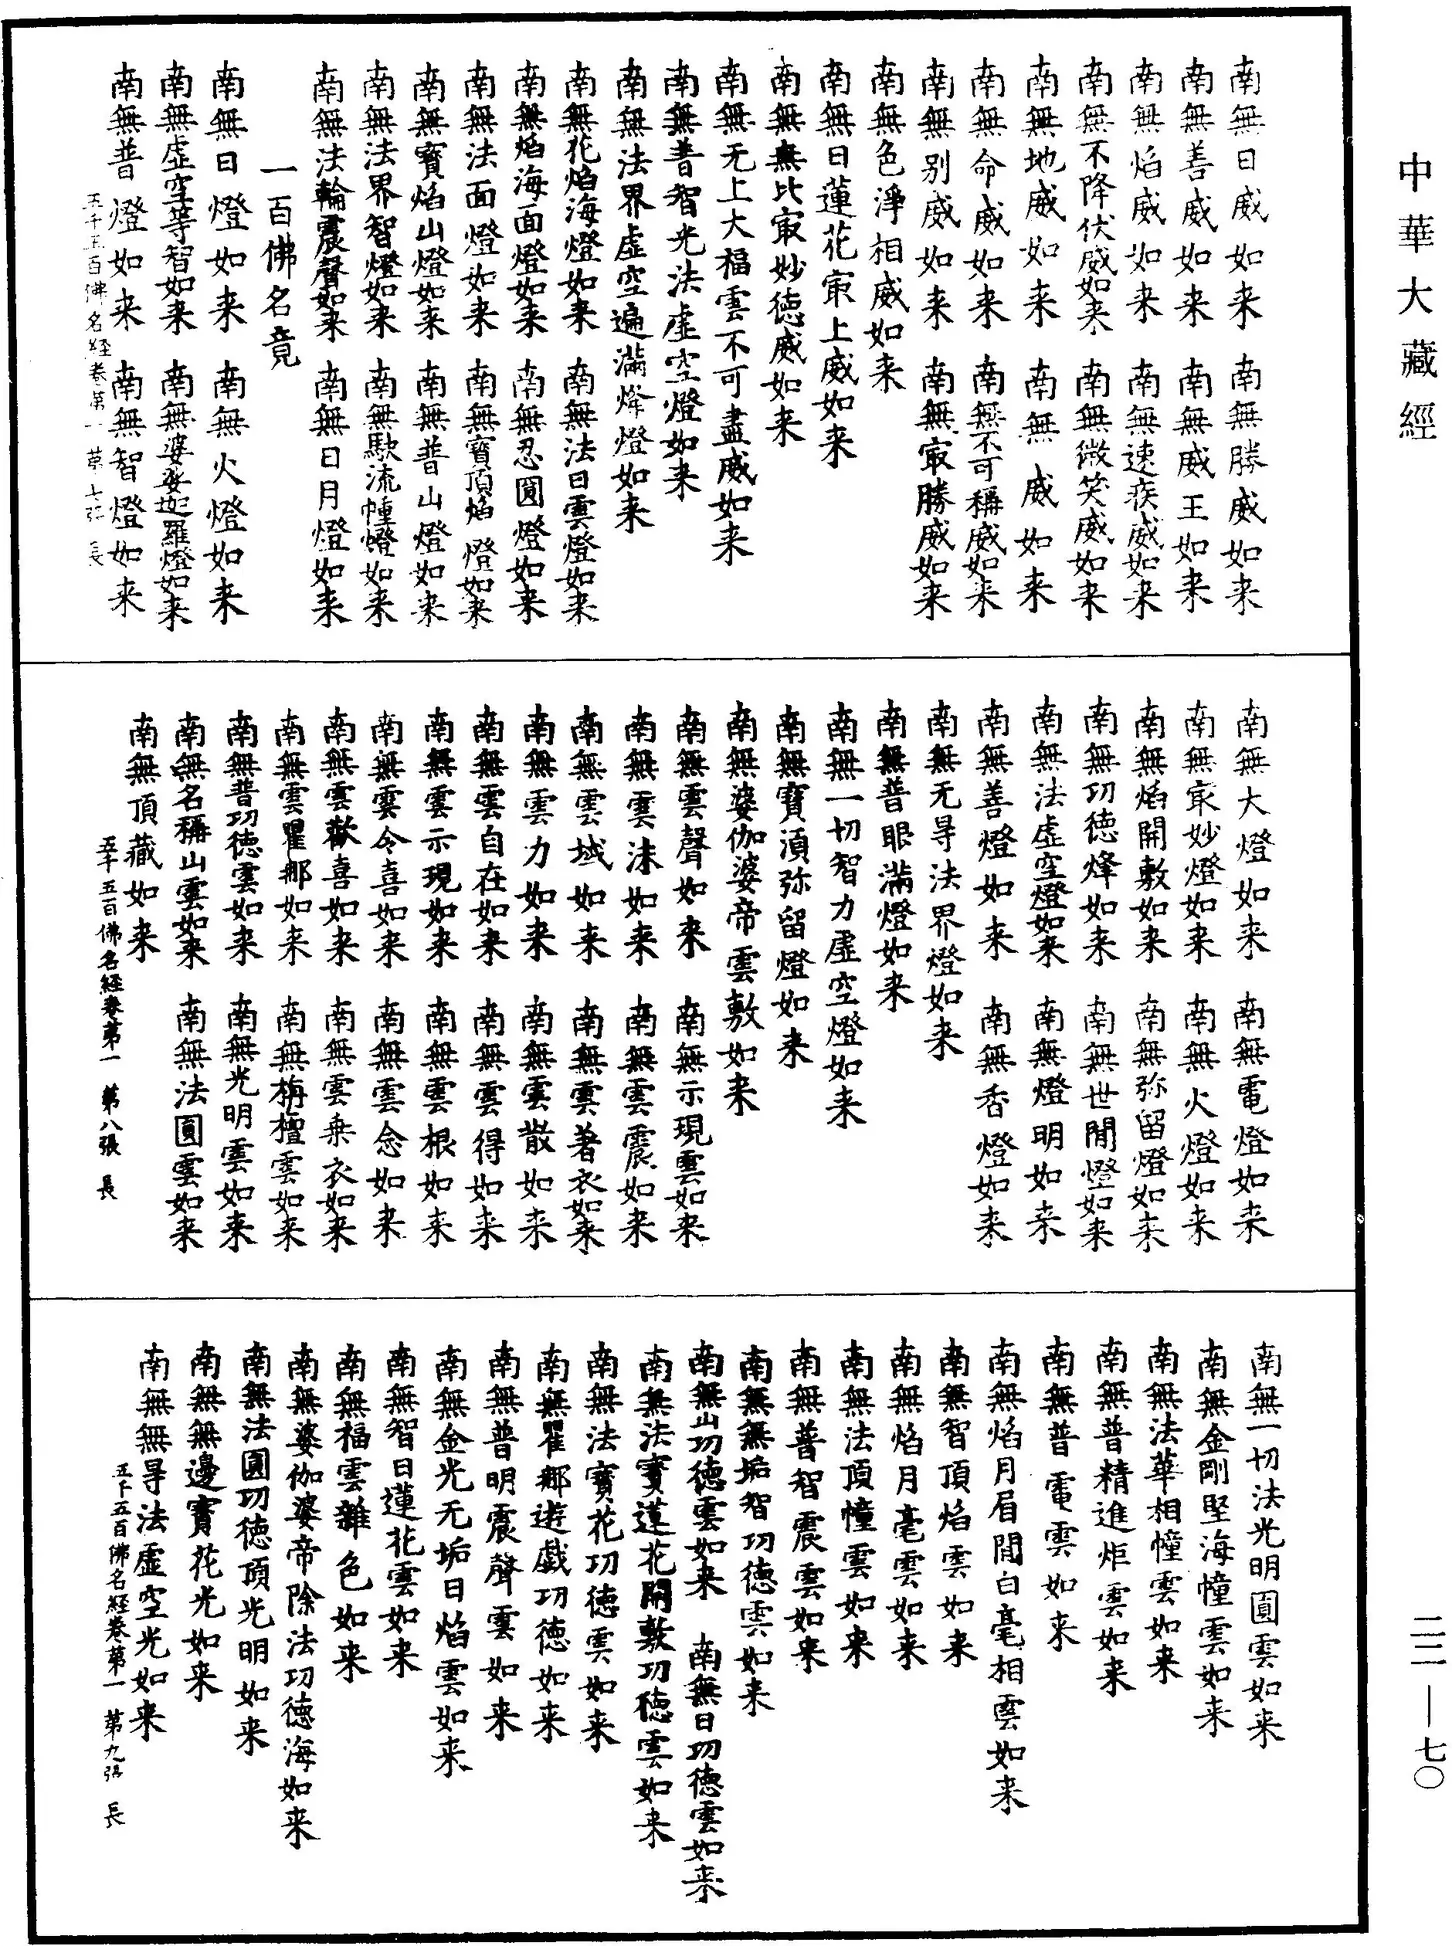 中華大藏經
南無日威如来　南無勝威如来
南無善威如来　南無威王如来
南無焰威如来　南無速疾威如来
南无不降伏威如来　南無微笑威如来
南無地威如来　南無威如来
南無命威如来　南無不可稱威如来
南無別威如来　南無㝡勝威如来
南無色淨相威如来
南無日蓮花㝡上威如来
南無無比㝡妙徳威如来
南無无上大福雲不可盡威如来
南無普智光法虛空燈如来
南無法界虛空遍滿燈如来
南無花焰海燈如来　南無法日雲燈如来
南無焰海面燈如来　南無忍圓燈如来
南無法面燈如来　南無寶頂焰燈如来
南無寶焰山燈如来　南無普山燈如来
南無法界智燈如来　南無馱流幢燈如来
南無法輪震聲如来　南無日月燈如来
一百佛名竟
南無日燈如来　南無火燈如来
南無虛空等智如来　南無婆娑迦羅燈如来
南無普燈如来　南無智燈如来
五千五百佛名経卷第一　第七張　長
南無大燈如来　南無電燈如来
南無㝡妙燈如来　南無火燈如来
南無焰開敷如来　南無弥留燈如来
南無功徳烽如来　南無世間燈如来
南無法虛空燈如来　南無燈明如来
南無善燈如来　南無香燈如来
南無无㝵法界燈如来
南無普眼滿燈如来
南無一切智力虛空燈如来
南無寶湏弥留燈如来
南無婆伽婆帝雲敷如来
南無雲聲如来　南無示現雲如来
南無雲沫如来　南無雲震如来
南無雲域如来　南無雲著衣如来
南無雲力如来　南無雲散如来
南無雲自在如来　南無雲得如来
南無雲示現如来　南無雲根如来
南無雲令喜如来　南無雲念如来
南無雲歡喜如来　南無雲乗衣如来
南無雲瞿那如来　南無栴檀雲如来
南無普功徳雲如来　南無光明雲如来
南無名稱山雲如来　南無法圓雲如来
南無頂藏如来
五千五百佛名経卷第一　第八張　長
南無一切法光明圓雲如来
南無金剛堅海幢雲如来
南無法華相幢雲如来
南無普精進炬雲如来
南無普電雲如来
南無焰月眉間白毫相雲如来
南無智頂焰雲如来
南無焰月毫雲如来
南無法頂幢雲如来
南無普智震雲如来
南無無垢智功徳雲如来
南無山功徳雲如来　南無日功徳雲如来
南無法寶蓮花開敷功徳雲如来
南無法寶花功徳雲如来
南無瞿那遊戯功徳如来
南無普明震聲雲如来
南無金光无垢日焰雲如来
南無智日蓮花雲如来
南無福雲雜色如来
南無婆伽婆帝除法功徳海如来
南無法圓功徳頂光明如来
南無無邊寶花光如来
南無無㝵法虛空光如来
五千五百佛名経卷第一　第九張　長
二二—七〇